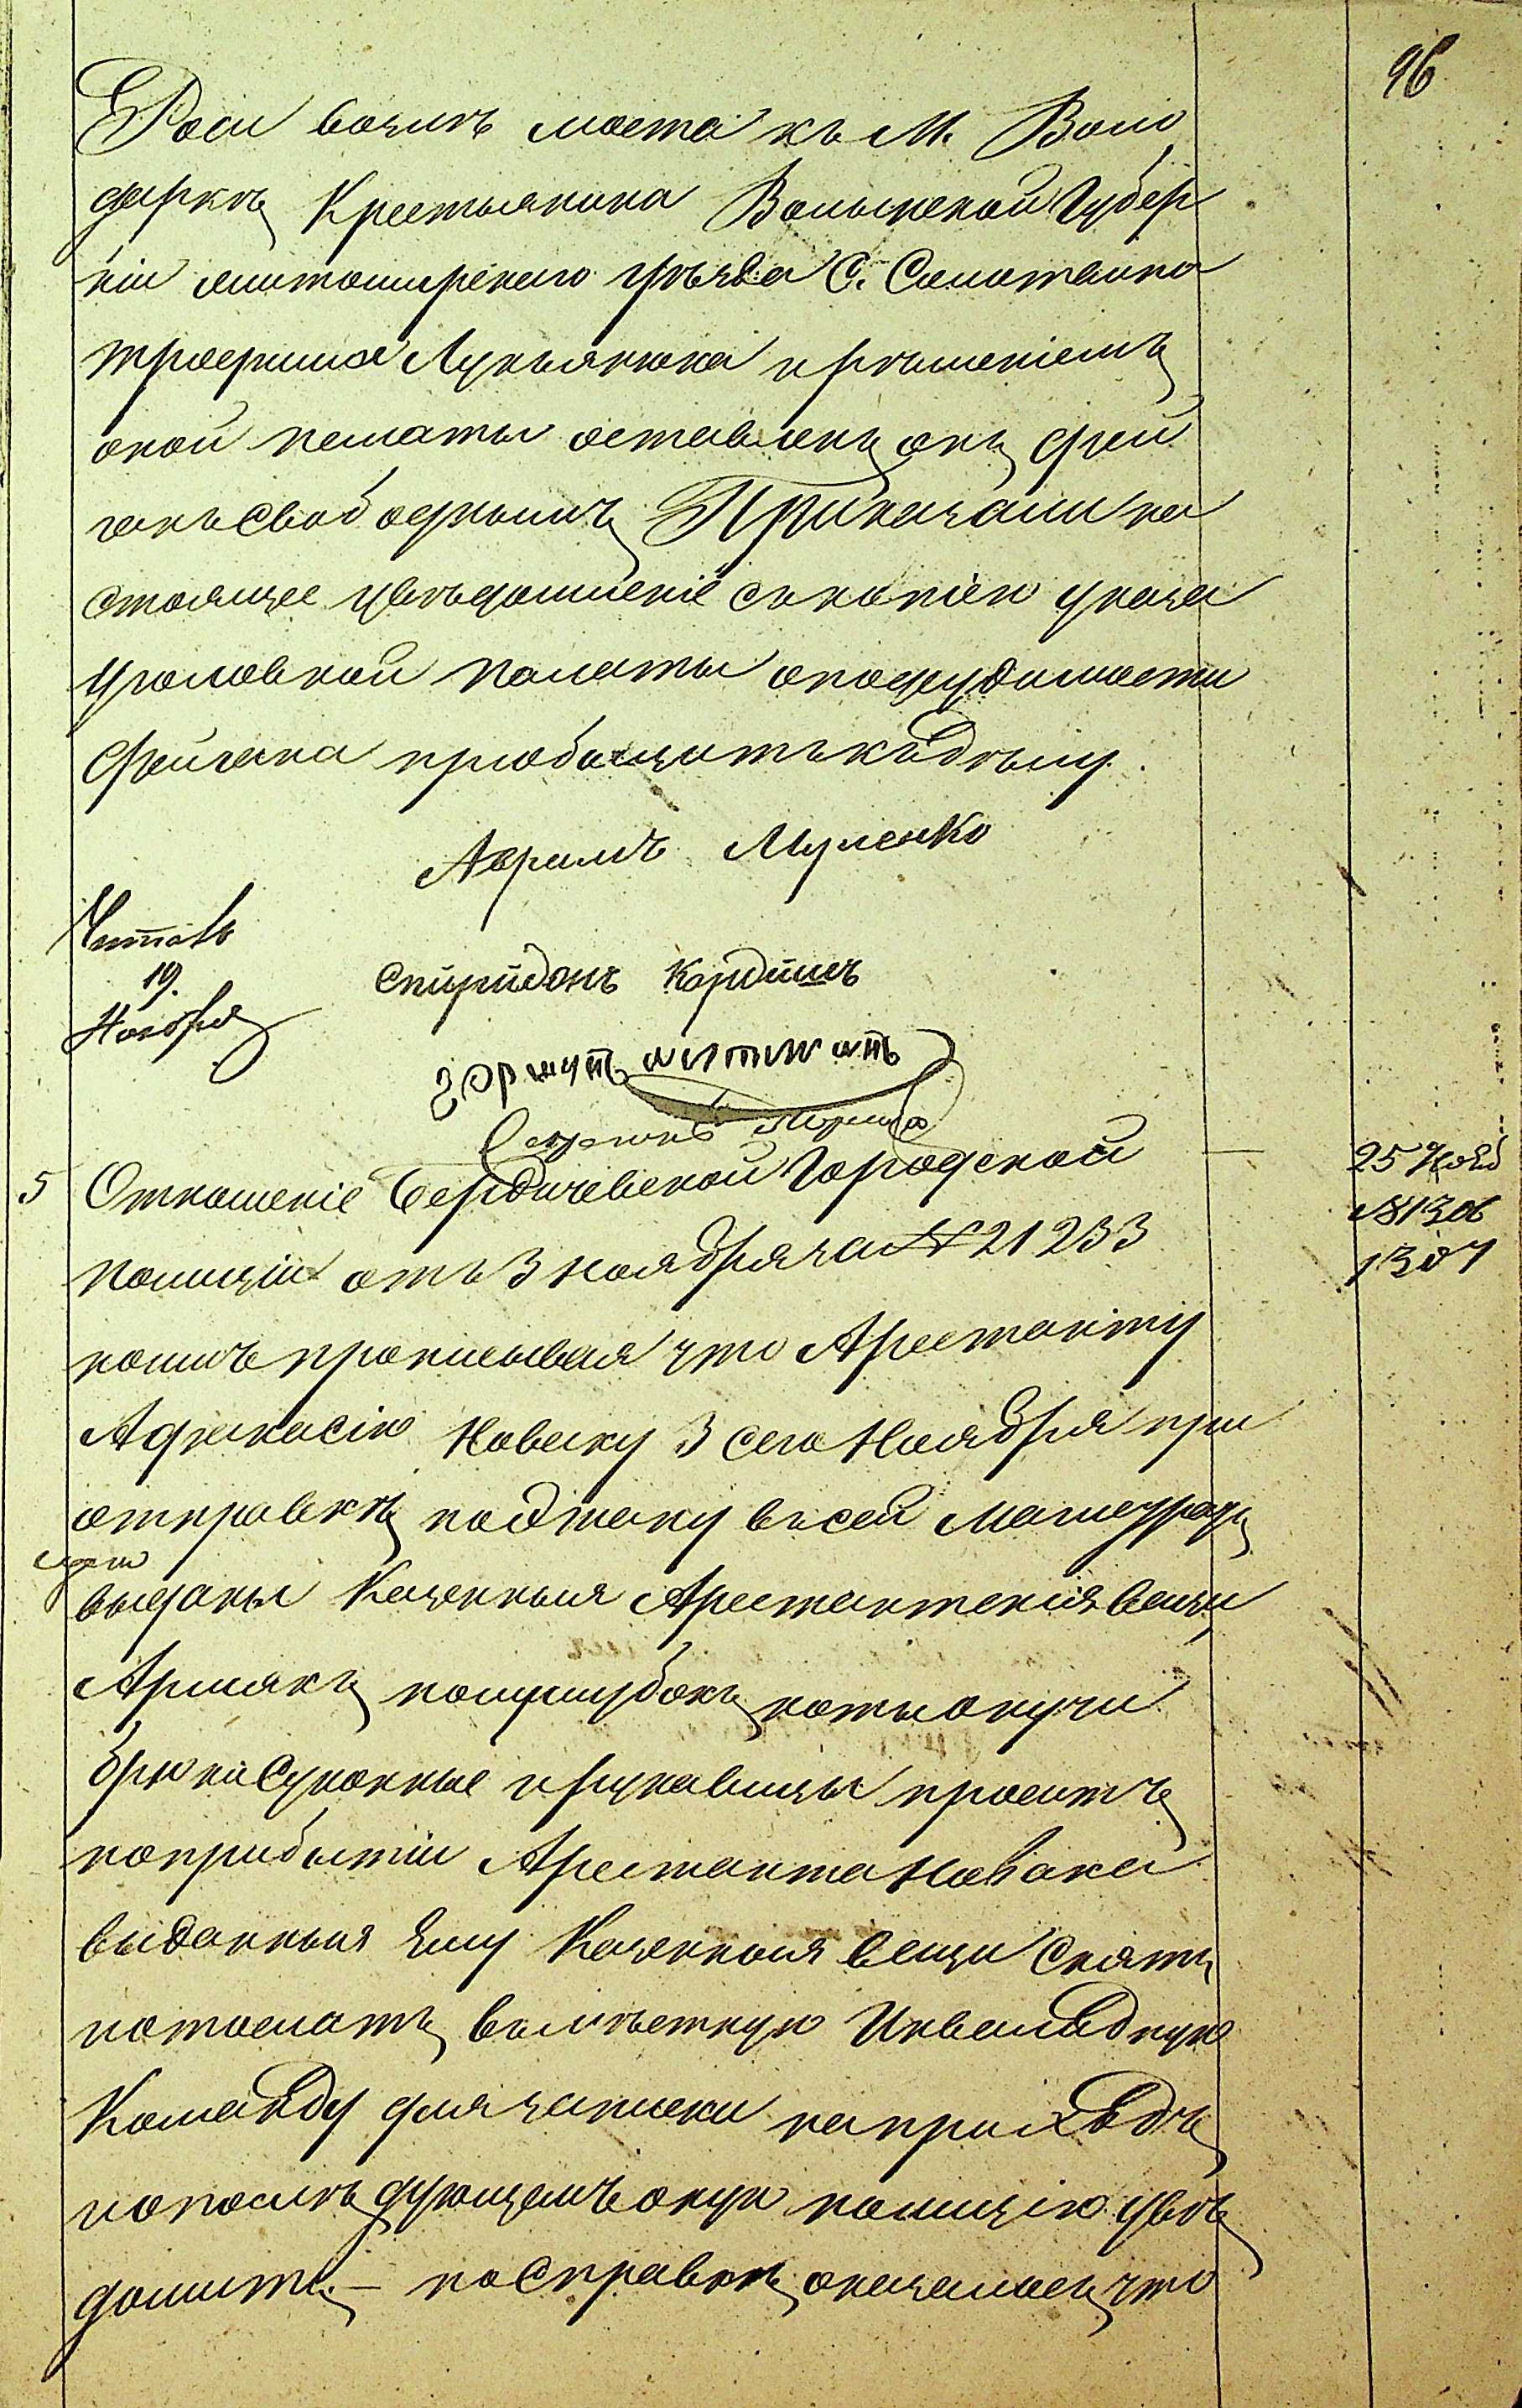 96
Роси возлѣ моста къ М. Воло
даркѣ Крестьянина Волынской Губер
ніи житомирскаго уѣзда С.
Лукьянюка и рѣшеніемъ
оной палаты оставленъ онъ Фей
ганъ свободнымъ Приказали на
стоящее увѣдомленіе съ копіею указа
уголовной палаты о подсудимости
Фейгана пріобщить къ дѣлу.
Аврамъ Муленко
Читалъ
19.
Ноября
Спиридонъ
Секретарь
5 Отношеніе Бердичевской Городской
полиціи отъ 3 ноября за № 21233
коимъ прописывая что Арестанту
Афанасію Новаку 3 сего Ноября при
отправкѣ по этапу въ сей
выданы Казенныя Арестантскія вещи
Армякъ полушубокъ коты онучи
брюки Суконные и рукавицы проситъ
по прибытіи Арестанта Новака
выданныя Ему Казенныя вещи Снять
и отослать въ мѣстную Инвалидную
Команду для записки на приходъ
и о послѣдующемъ оную полицію увѣ
домить. — по Справкѣ оказалось что
25 Нояб
№ 1306
1307